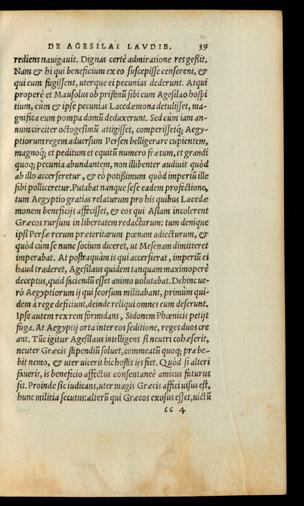 DE AGESILAI LAVDIE. 39
rediens nauigauit. Dignas certè admiratione res gessit.
Nam & hi qui beneficium ex eo suscepisse censerent, &
qui eum fugissent, uterque ei pecunias dederunt. Atqui
properè et Mausolus ob pristinũ sibi cum Agesilao hospi
tium, cũm & ipse pecunias Lacedæmona detulisset, ma-
gnifica eum pompa domũ deduxerunt. Sed cùm iam an-
num circiter octogesimũ attigisset, comperissetq́; Aegy-
ptiorum regem aduersum Persen belligerare cupientem,
magnoq́; et peditum et equitũ numero fretum, et grandi
quoq; pecunia abundantem, non illibenter audiuit quòd
ab illo accerseretur, & eò potißimum quòd imperiũ ille
sibi polliceretur. Putabat nanque sese eadem profectione,
tum Aegyptio gratias relaturum pro his quibus Lacedæ
monem beneficijs affecisset, & eos qui Asiam incolerent
Græcos rursum in libertatem redacturum: tum denique
ipsi Persæ rerum præteritarum pœnam adicturum, &
quòd cùm se nunc socium diceret, ut Mesenam dimitteret
imperabat. At postraquàm is qui accersierat, imperiũ ei
haud traderet, Agesilaus quidem tanquam maximoperè
deceptus, quid faciendũ esset animo uolutabat. Dehinc ue-
rò Aegyptiorum ij qui seorsum militabant, primùm qui-
dem à rege deficiunt, deinde reliqui omnes eum deserunt.
Ipse autem rex rerm formidans, Sidonem Phœnicis petijt
fuga. At Aegyptij orta inter eos seditione, reges duos cre
ant. Tũc igitur Agesilaus intelligens si neutri cohæserit,
neuter Græcis stipendiũ soluet, commeatũ quoq; præbe-
bit nemo, & uter uicerit hic hostis ijs fiet. Quòd si alteri
fauerit, is beneficio affectus consentaneè amicus futurus
sit. Proinde sic iudicans, uter magis Græcis affici uisus est,
hunc militia secutus: alterũ qui Græcos exosus esset, uictũ
cc 4